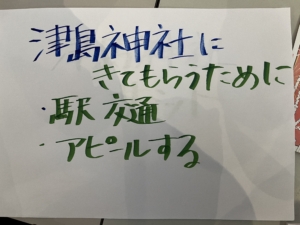 津島神社に
きてもらうために
・駅 交通
・アピールする